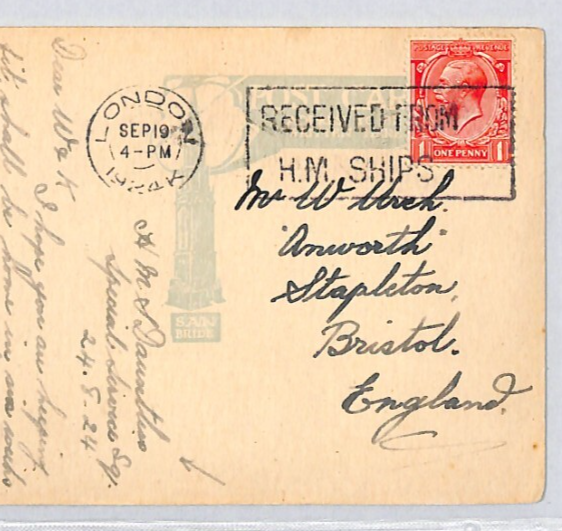 LONDON
SEP 19
4-PM
1924
RECEIVED FROM
H.M. SHIPS
POSTAGE REVENUE
1 ONE PENNY 1
Mr W Urch.
"Anworth"
Stapleton,
Bristol.
England.
SAN
BRIDE
H M S Dauntless
Special Service Sq.
24.8.24
Dear W & K
I hope you are keeping
fit shall be home in six weeks